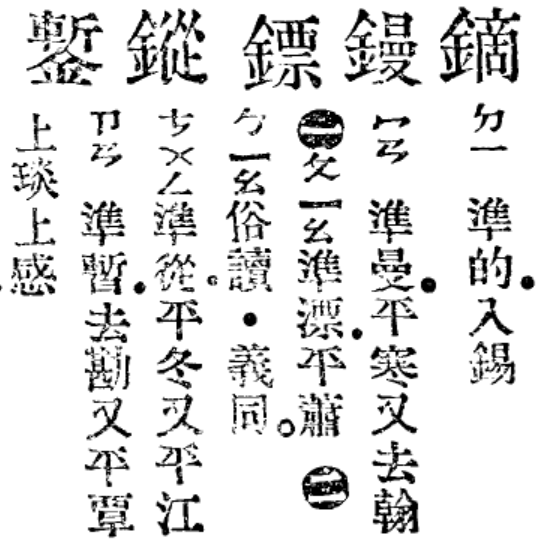 鏑 ㄉㄧ 準的●入錫
鏝 ㄇㄢ 準曼●平寒又去翰
鏢 ㊀ㄆㄧㄠ準漂●平蕭 ㊁
ㄅㄧㄠ俗讀・義同。
鏦 ㄘㄨㄥ準從。平冬又平江
鏨 ㄗㄢ 準暫●去勘又平覃
上琰上感